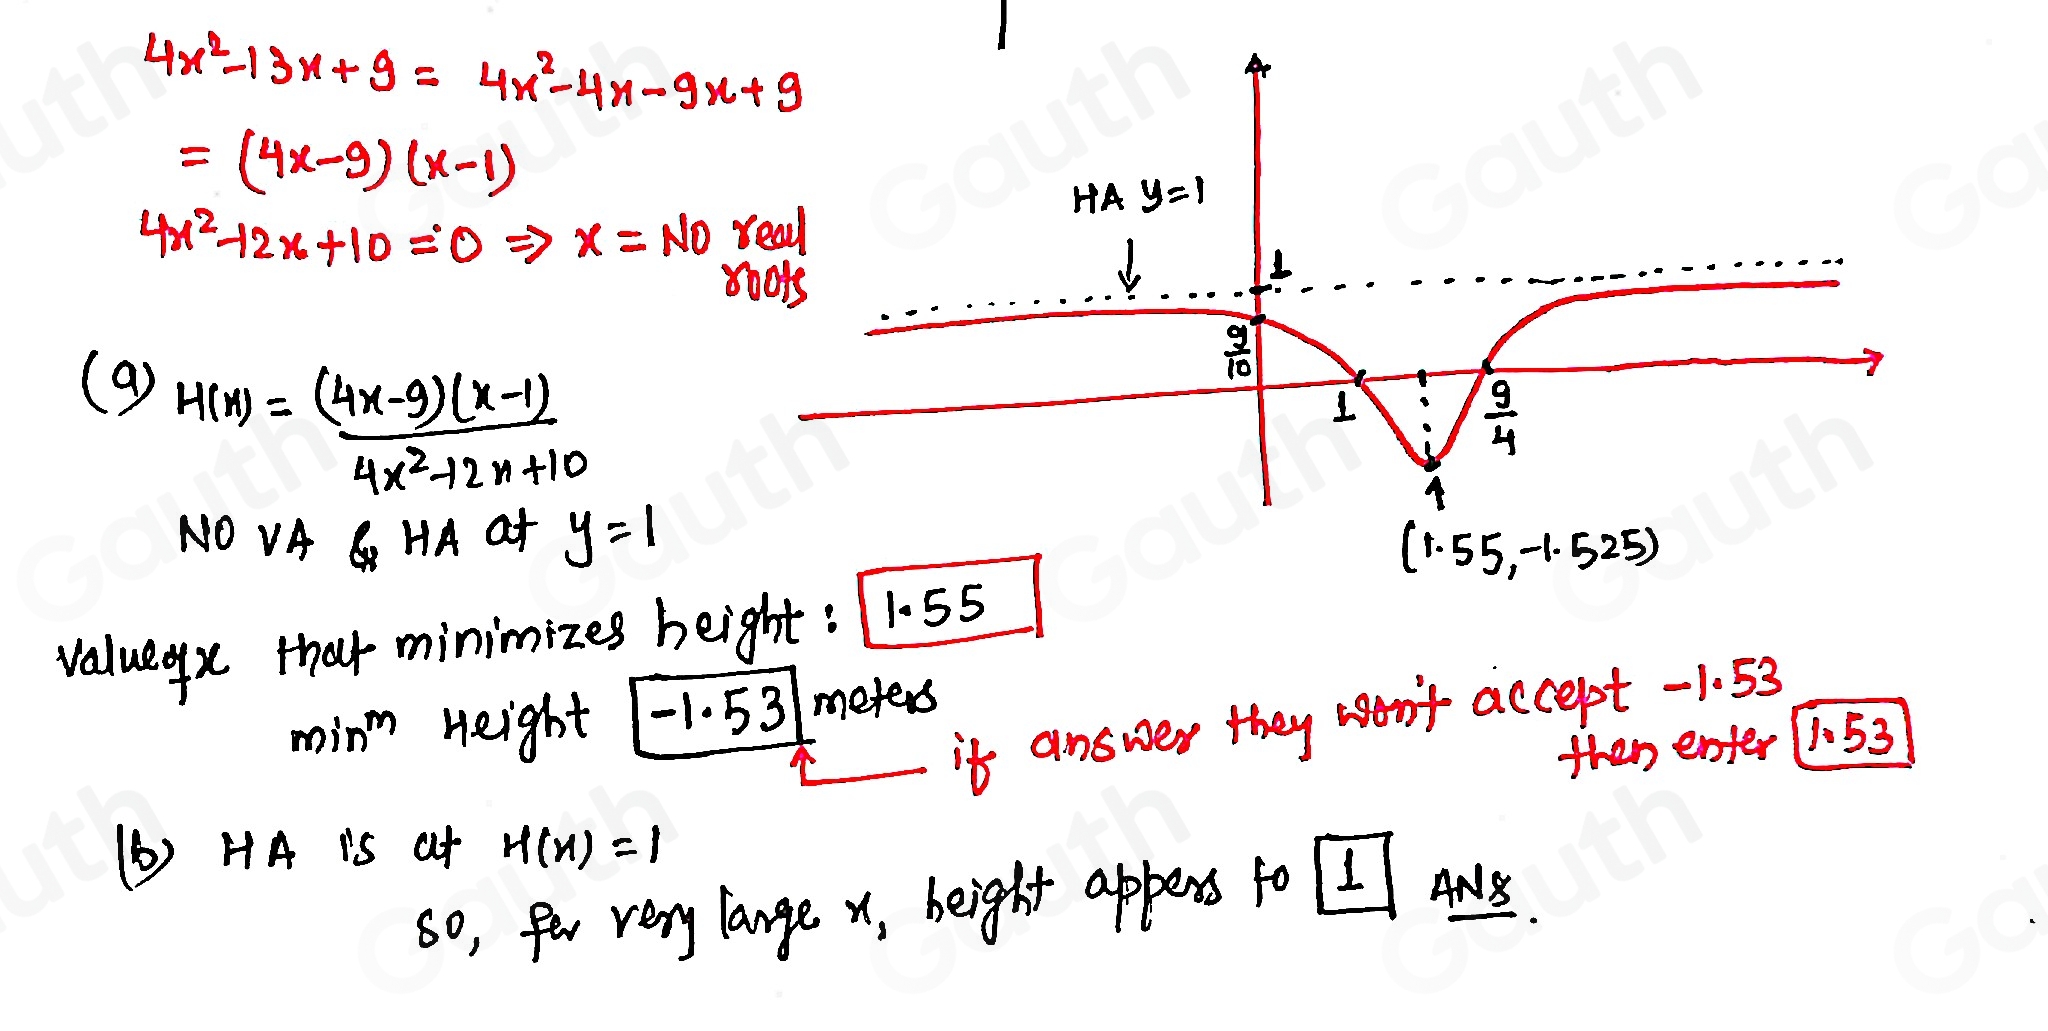 4x²-13x+9 = 4x²-4x-9x+9
= (4x-9)(x-1)
4x²-12x+10=0 ⇒ x = NO real roots
HA y=1
1
9/10
1
9/4
(1.55,-1.525)
(a) H(x) = (4x-9)(x-1) / 4x²-12x+10
NO VA & HA at y=1
value of x that minimizes height: 1.55
minᵐ Height -1.53 meters
if answer they won't accept -1.53
then enter 1.53
(b) HA is at H(x) = 1
so, for very large x, height appers to 1 ANS.
Gauth